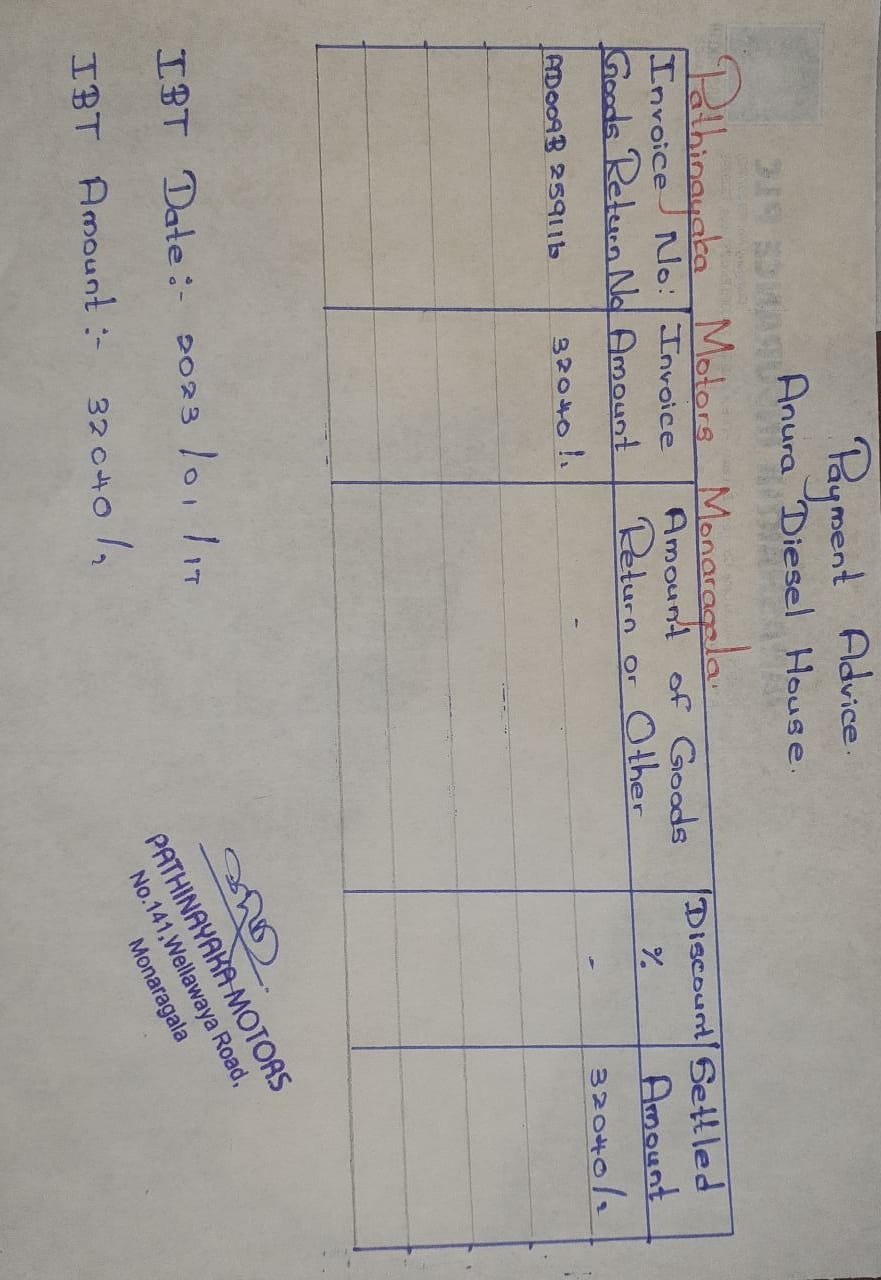 Payment Advice.
Anura Diesel House.
Pathinayaka Motors Monaragala.
Invoice No: Invoice Amount of Goods Discount Settled
Goods Return No Amount Return or Other % Amount
32040/, - - 32040/,
IBT Date:- 2023/01/17
IBT Amount:- 32040/,
PATHINAYAKA MOTORS
No.141, Wellawaya Road,
Monaragala